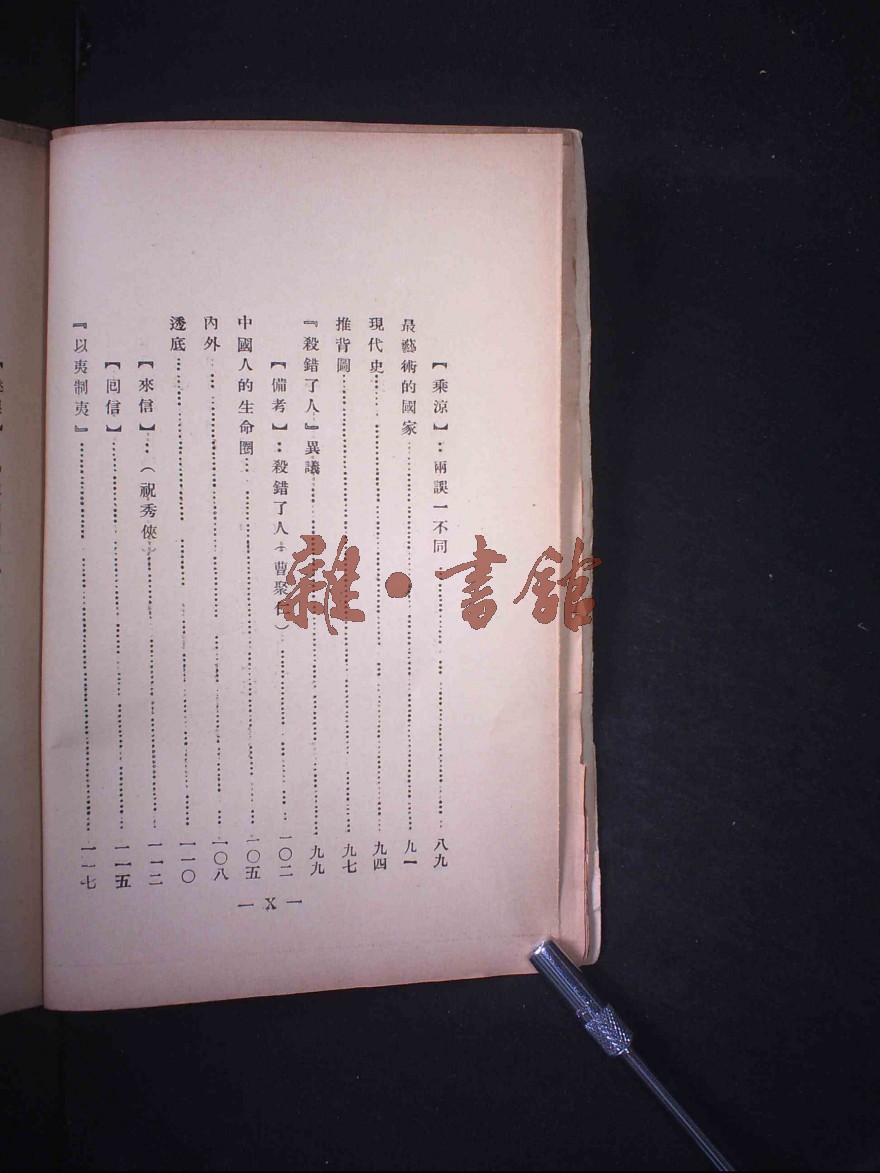 【乘涼】：兩誤一不同……八九
最藝術的國家……九一
現代史……九四
推背圖……九七
『殺錯了人』異議……九九
【備考】：殺錯了人（曹聚仁）……一〇二
中國人的生命圈……一〇五
內外……一〇八
透底……一一〇
【來信】：（祝秀俠）……一一二
【回信】……一一五
『以夷制夷』……一一七
— X —
雜·書館